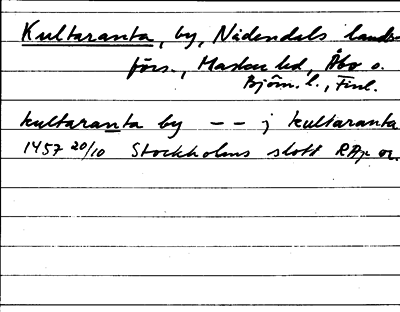 Kultaranta, by, Nådendals lands-
förs., Masku hd, Åbo o.
Björn. l., Finl.
kultaranta by -- j kultaranta
1457 20/10 Stockholms slott RAp or.